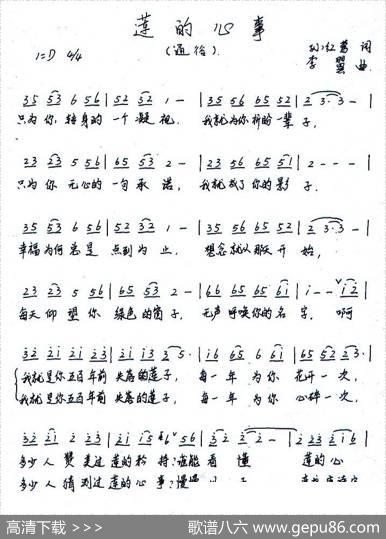 莲的心事
(通俗)
1=D 4/4
孙红莺 词
李 曌 曲
35 53 6 56 | 52 32 1 - | 35 56 65 52 | 2 3·3 - |
只为你,转身的一个凝视, 我就为你祈祷一辈子,
23 23 5 56 | 65 53 2 - | 35 56 65 51 | 2 - - - |
只为你 无心的一句承诺, 我就成了你的影子.
35 53 6 56 | 52 32 1 - | 35 56 65 52 | 2 3·3 - |
幸福为何总是 点到为止, 想念就从那天开始,
23 23 5 56 | 65 53 2 - | 66 65 65 61 | i - - i2 |
每天仰望你 绿色的窗子, 无声呼唤你的名字, 啊
32 21 21 23 | 21 13 3 5· | i6 65 6 61 | 65 52 23· |
我就是你五百年前 失落的莲子, 每一年 为你 花开一次,
我就是你五百年前 失落的莲子, 每一年 为你 心碎一次,
多少人赞美过莲的矜持;谁能看懂 莲的心
多少人猜测过莲的心事;慢慢
高清下载 >>>
歌谱八六 www.gepu86.com